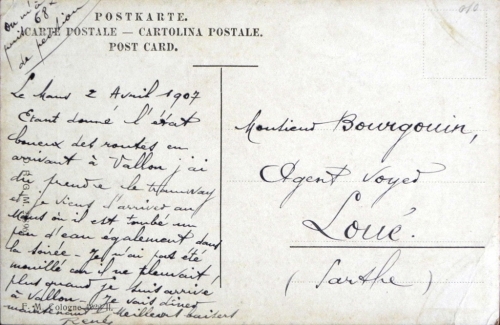 On m'a
68
de pension
POSTKARTE.
CARTE POSTALE — CARTOLINA POSTALE.
POST CARD.
Le Mans 2 Avril 1907
Etant donné l'état
boueux des routes en
arrivant à Vallon j'ai
dû prendre le tramway
et je viens d'arriver au
Mans où il est tombé un
peu d'eau également dans
la soirée. Je n'ai pas été
mouillé car il ne pleuvait
plus quand je suis arrivé
à Vallon. Je vais dîner
maintenant. Meilleurs baisers
Monsieur Bourgouin,
Agent voyer
Loué.
(Sarthe)